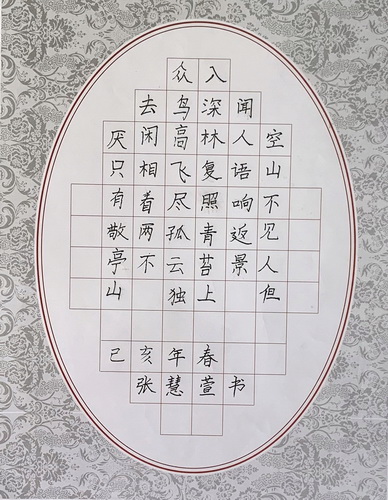 空山不见人但
闻人语响返景
入深林复照青苔上
众鸟高飞尽孤云独
去闲相看两不
厌只有敬亭山
己亥年春
张慧萱书